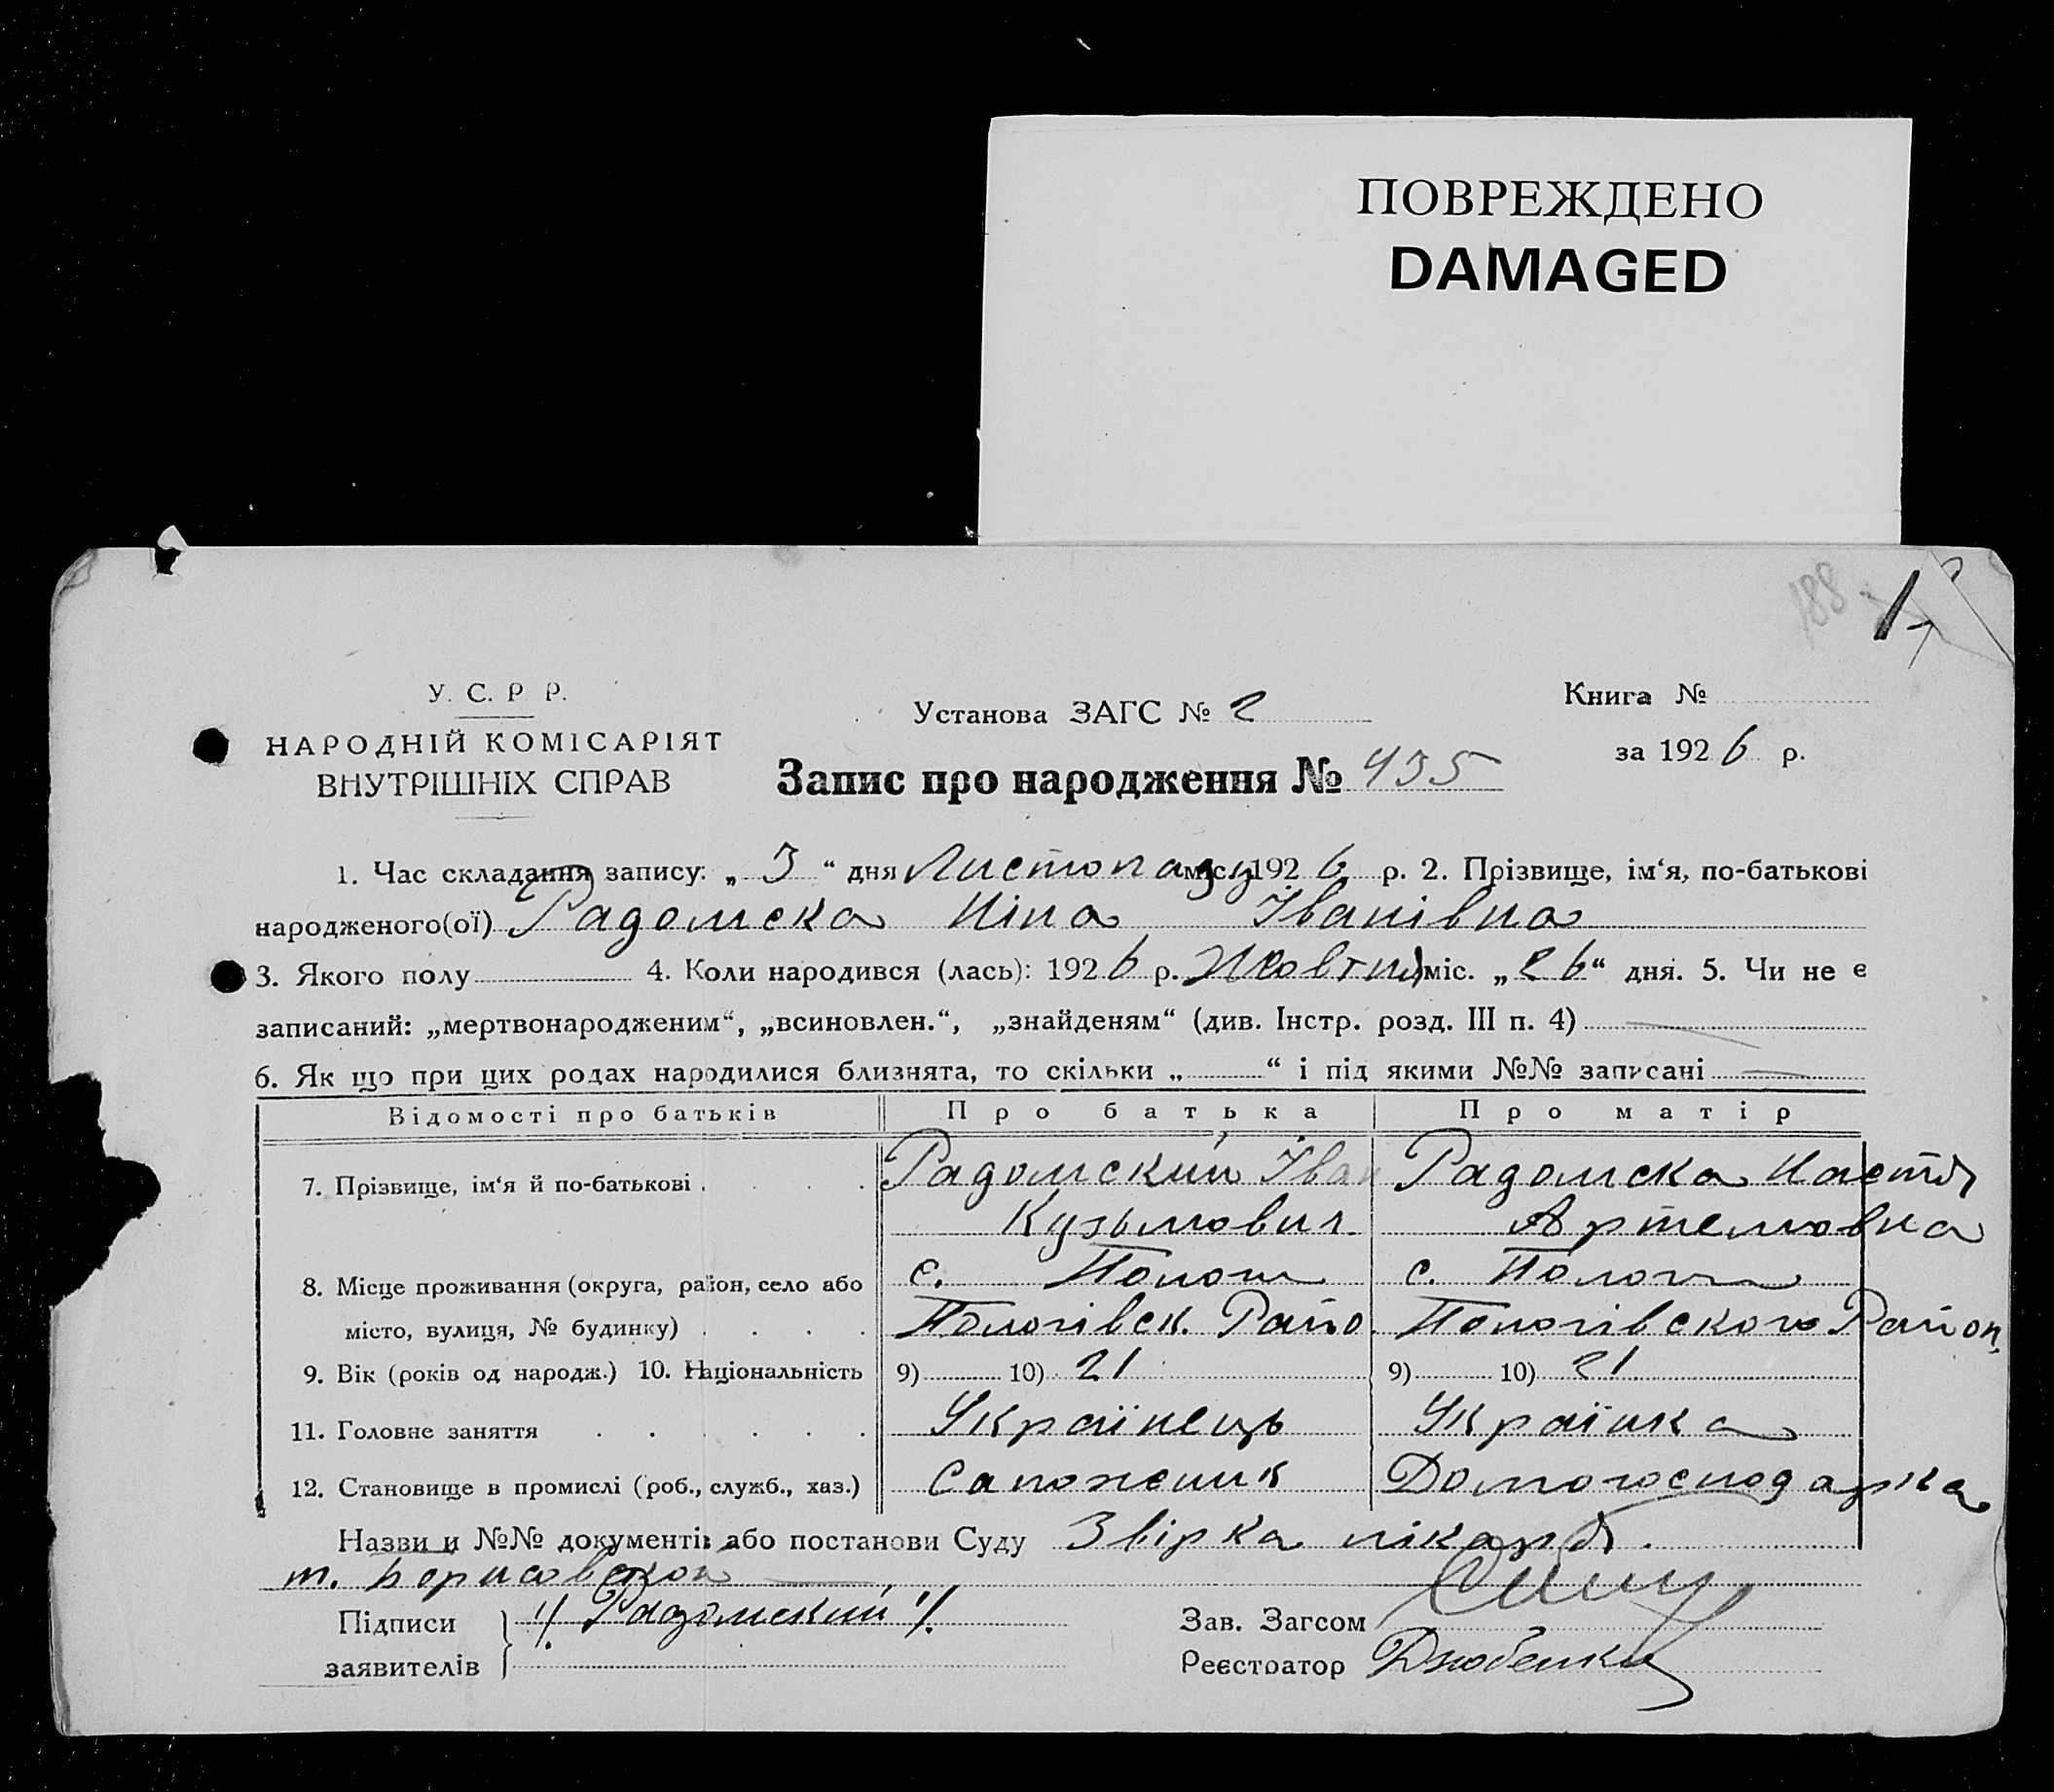 ПОВРЕЖДЕНО
DAMAGED
188
У. С. Р Р.
НАРОДНІЙ КОМІСАРІЯТ
ВНУТРІШНІХ СПРАВ
Установа ЗАГС № 2
Книга №
за 1926 р.
Запис про народження № 435
1. Час складання запису: „ 3 “ дня Листопаду міс. 1926 р. 2. Прізвище, ім‘я, по-батькові
народженого(ої) Радомска Ніна Іванівна
3. Якого полу 4. Коли народився (лась): 1926 р. Жовтня міс. „ 26 “ дня. 5. Чи не є
записаний: „мертвонародженим“, „всиновлен.“, „знайденям“ (див. Інстр. розд. III п. 4)
6. Як що при цих родах народилися близнята, то скільки „ “ і під якими №№ записані
Відомості про батьків Про батька Про матір
7. Прізвище, ім‘я й по-батькові Радомский Іван Радомска Настя
Кузьмович Артемовна
8. Місце проживання (округа, район, село або с. Пологи с. Пологи
місто, вулиця, № будинку) Пологівск. Райо. Пологівского Район.
9. Вік (років од народж.) 10. Національність 9) 10) 21 9) 10) 21
11. Головне заняття Українець Українка
12. Становище в промислі (роб., служб., хаз.) Сапожник Домогосподарка
Назви и №№ документів або постанови Суду Звірка лікаря
т. Борисовской
Підписи // Радомский //
заявителів
Зав. Загсом
Реєстратор Дзюбенко